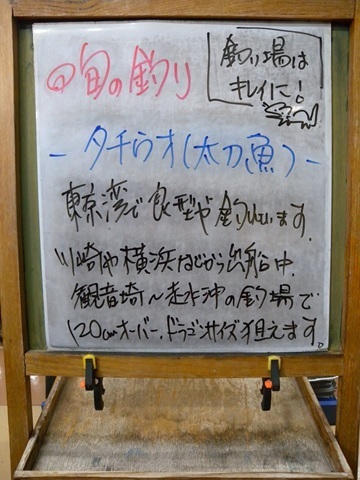 旬の釣り
釣り場は
キレイに!
- タチウオ(太刀魚) -
東京湾で良型が釣れています。
川崎や横浜などから出船中。
観音埼~走水沖の釣場で
120cmオーバー、ドラゴンサイズ狙えます。